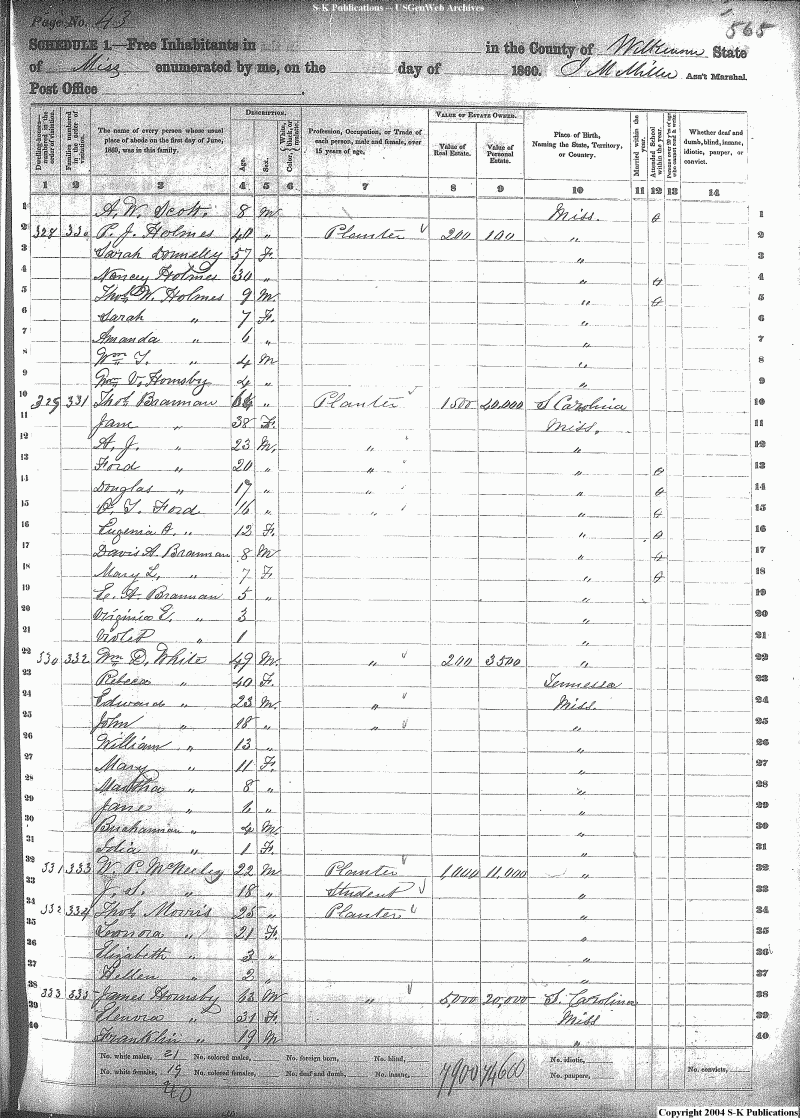 S-K Publications -- USGenWeb Archives
Page No. 43
565
SCHEDULE 1.—Free Inhabitants in in the County of Wilkinson State
of Miss enumerated by me, on the day of 1860. J M Miller Ass't Marshal.
Post Office
Dwelling-houses—numbered in the order of visitation.
Families numbered in the order of visitation.
The name of every person whose usual place of abode on the first day of June, 1860, was in this family.
DESCRIPTION.
Age.
Sex.
Color, White, black, or mulatto.
Profession, Occupation, or Trade of each person, male and female, over 15 years of age.
VALUE OF ESTATE OWNED.
Value of Real Estate.
Value of Personal Estate.
Place of Birth, Naming the State, Territory, or Country.
Married within the year.
Attended School within the year.
Persons over 20 y'rs of age who cannot read & write.
Whether deaf and dumb, blind, insane, idiotic, pauper, or convict.
1 2 3 4 5 6 7 8 9 10 11 12 13 14
1 A. W. Scott. 8 M Miss. 1
2 328 330 P. J. Holmes 40 " Planter 200 100 " 2
3 Sarah Donnelly 57 F. " 3
4 Nancy Holmes 30 " " 4
5 Thos W. Holmes 9 M. " 5
6 Sarah " 7 F. " 6
7 Amanda " 6 " " 7
8 Wm T. " 4 M " 8
9 Wm V. Hornsby 4 " " 9
10 329 331 Thos Brannan 64 " Planter 1500 40,000 S Carolina 10
11 Jane " 38 F. Miss. 11
12 A. J. " 23 M. " " 12
13 Ford " 20 " " " 13
14 Douglas " 17 " " " 14
15 Ford 16 " " " 15
16 Eugenia A. " 12 F. " 16
17 Davis A. Brannan 8 M " 17
18 Mary L. " 7 F " 18
19 A. Brannan 5 " " 19
20 Virginia E. " 3 " 20
21 Violet " 1 " 21
22 330 332 Wm D. White 49 M. " 200 3500 " 22
23 Rebecca " 40 F. Tennessa 23
24 Edward " 23 M. " Miss. 24
25 John " 18 " " " 25
26 William " 13 " " 26
27 Mary " 11 F. " 27
28 Martha " 8 " " 28
29 Jane " 6 " " 29
30 Buchannan " 4 M. " 30
31 " 1 F. " 31
32 331 333 W. P. McNeely 22 M Planter 1,000 11,000 " 32
33 J. S. " 18 " Student " 33
34 332 334 Thos Morris 25 " Planter " 34
35 Leonora " 21 F. " 35
36 Elizabeth " 3 " " 36
37 Hellen " 2 " " 37
38 333 335 James Hornsby 63 M " 5,000 20,000 S. Carolina 38
39 Elenora " 31 F. Miss 39
40 Franklin " 19 M 40
No. white males, 21 No. colored males, No. foreign born, No. blind, No. idiotic,
No. white females, 19 No. colored females, No. deaf and dumb, No. insane, 7900 74600 No. paupers, No. convicts,
40
Copyright 2004 S-K Publications